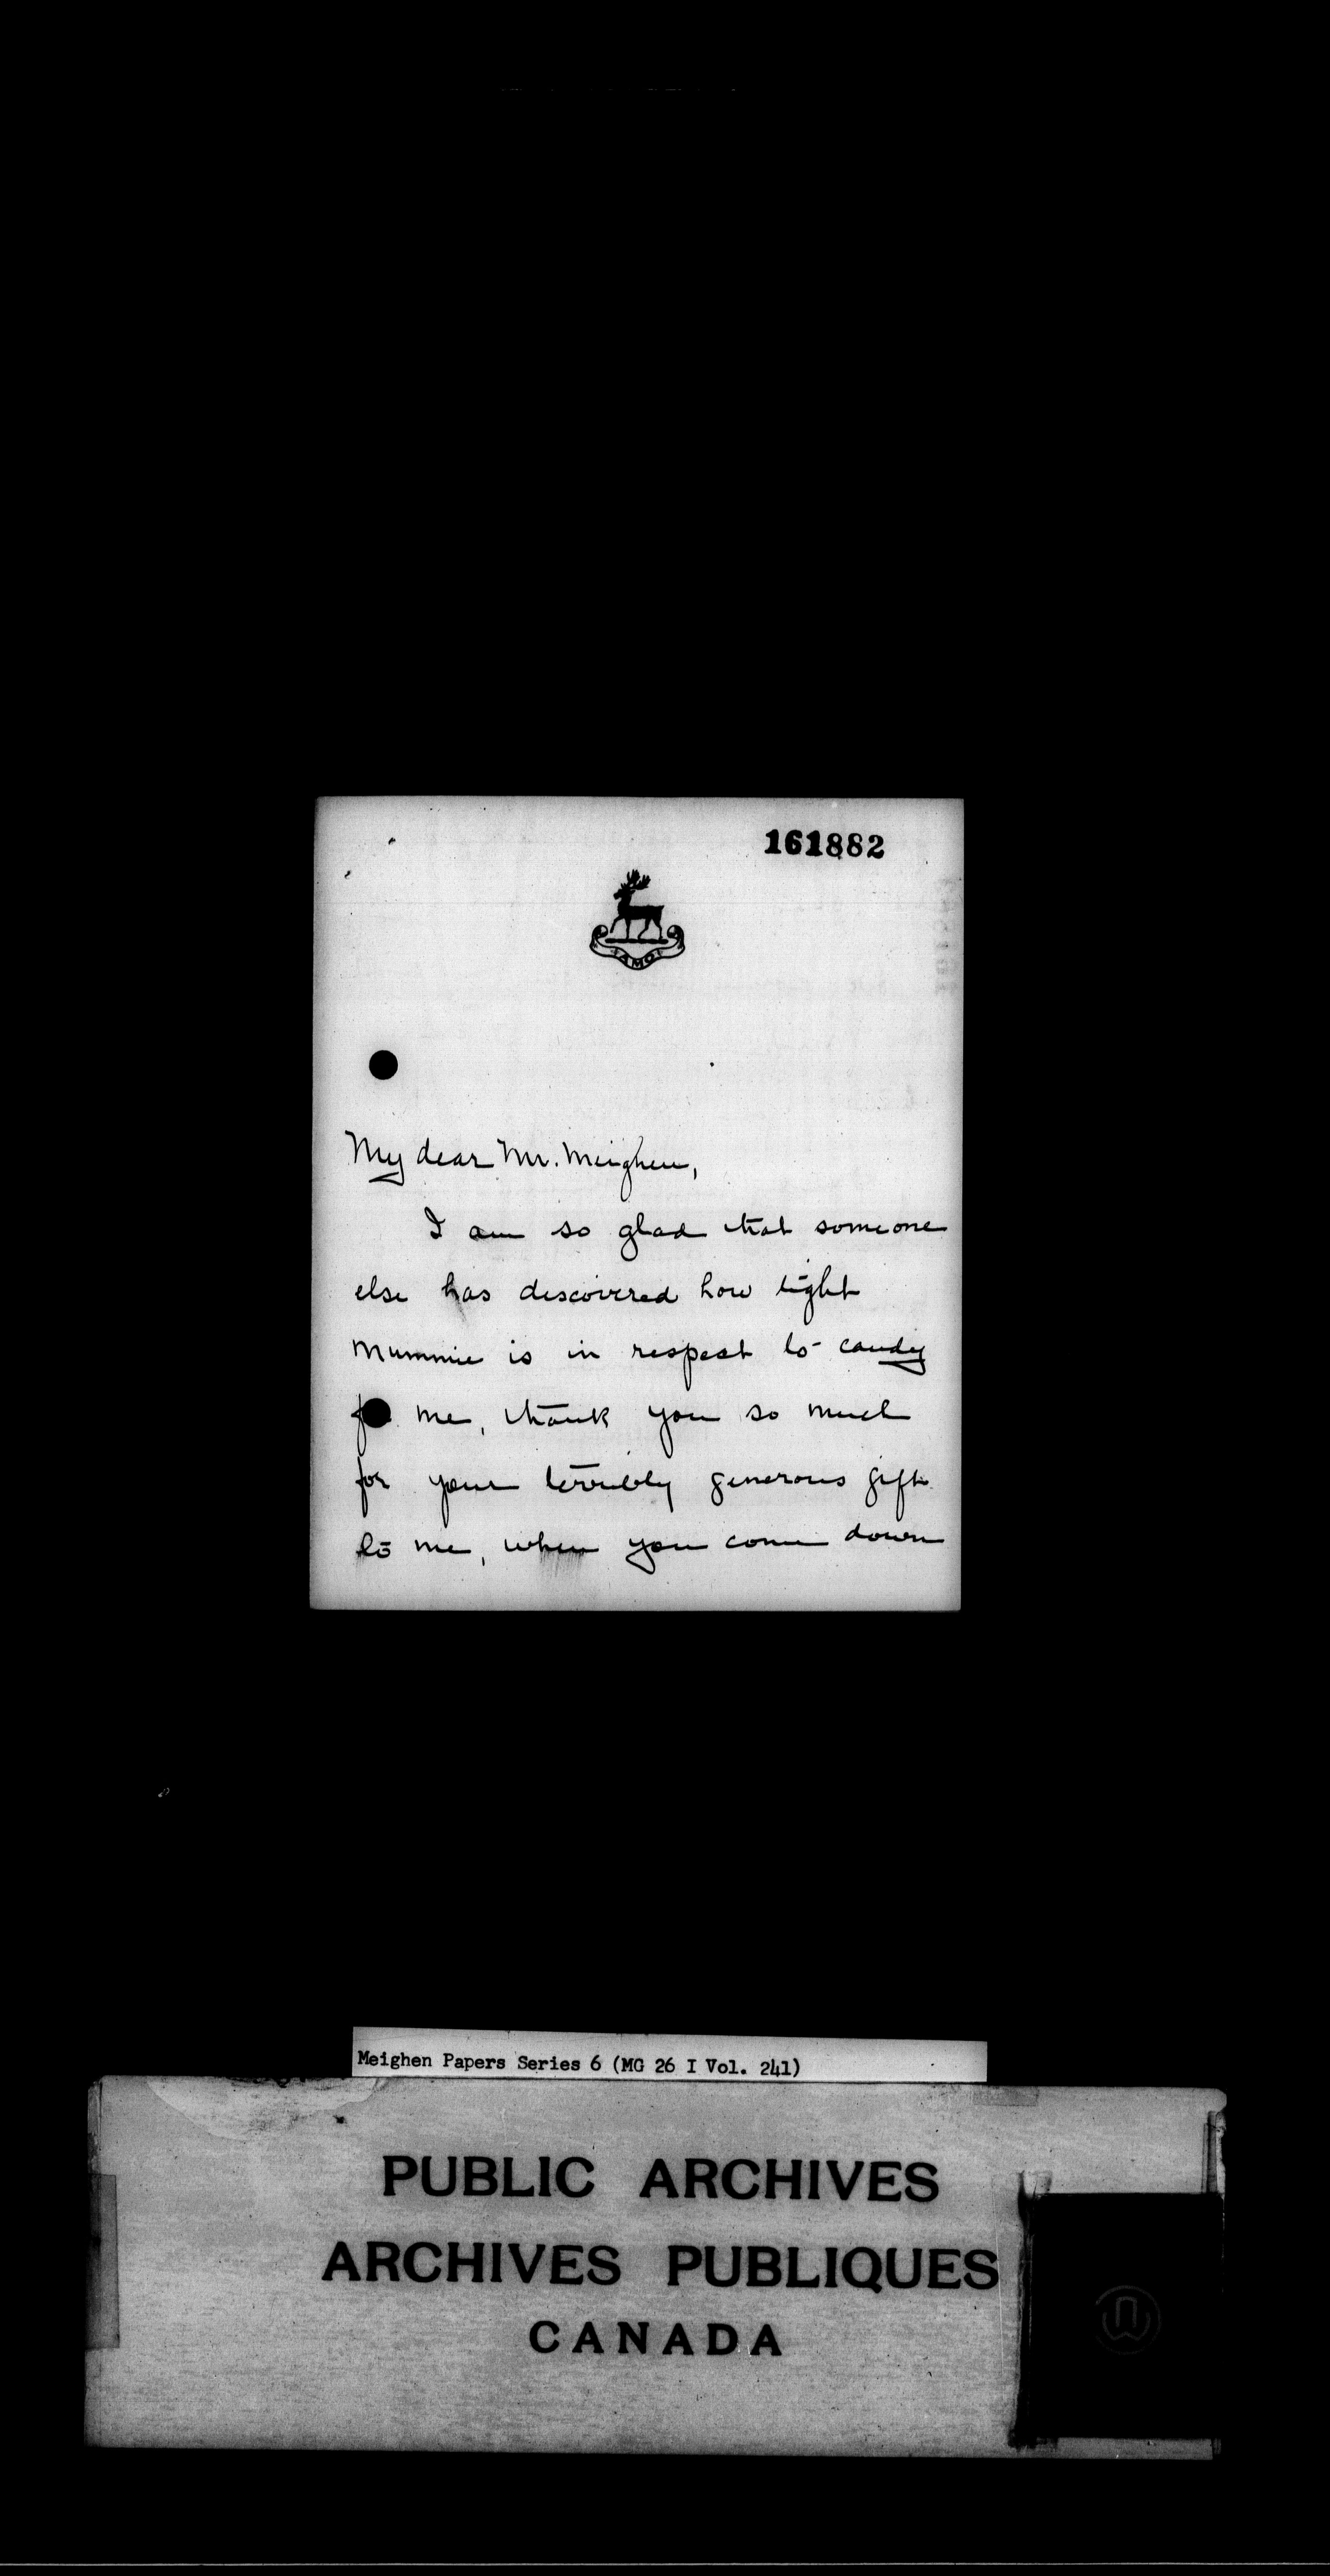 161882
AMO
My dear Mr. Meighen,
I am so glad that someone
else has discovered how tight
Mummie is in respect to candy
me, thank you so much
for your terribly generous gift
to me, when you come down
Meighen Papers Series 6 (MG 26 I Vol. 241)
PUBLIC ARCHIVES
ARCHIVES PUBLIQUES
CANADA